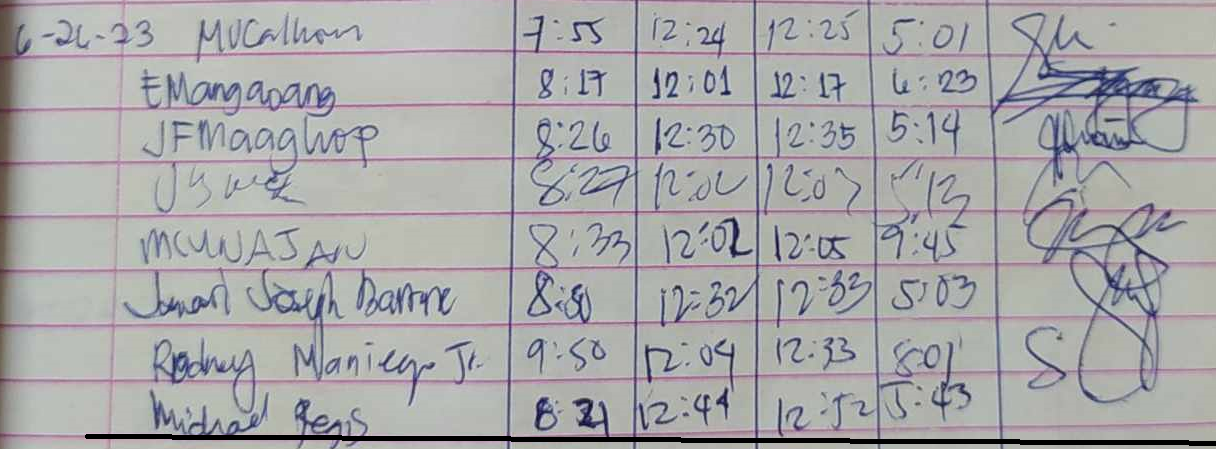 6-26-23 MVCalhon 7:55 12:24 12:25 5:01
EMangaoang 8:17 12:01 12:17 6:23
JFMaaghop 8:26 12:30 12:35 5:14
8:27 12:02 12:07 5:13
MCUNAJAN 8:33 12:02 12:05 9:45
Joseph 12:32 12:33 5:03
Rodney Maniego Jr. 9:50 12:04 12:33 8:01
Michael Regis 12:44 12:52 5:43